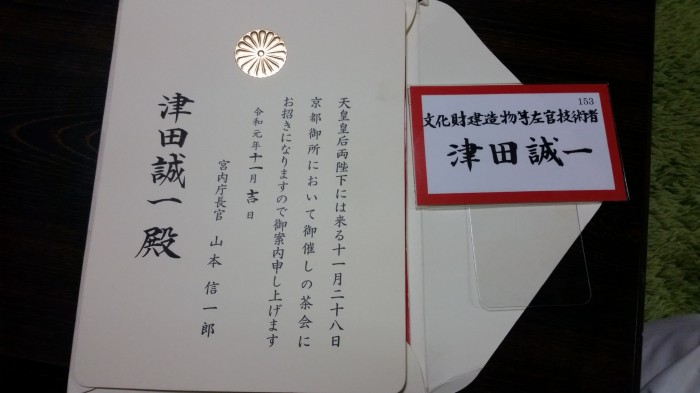 天皇皇后両陛下には来る十一月二十八日
京都御所において御催しの茶会に
お招きになりますので御案内申し上げます
令和元年十一月吉日
宮内庁長官 山本信一郎
津田誠一殿
153
文化財建造物等左官技術者
津田誠一